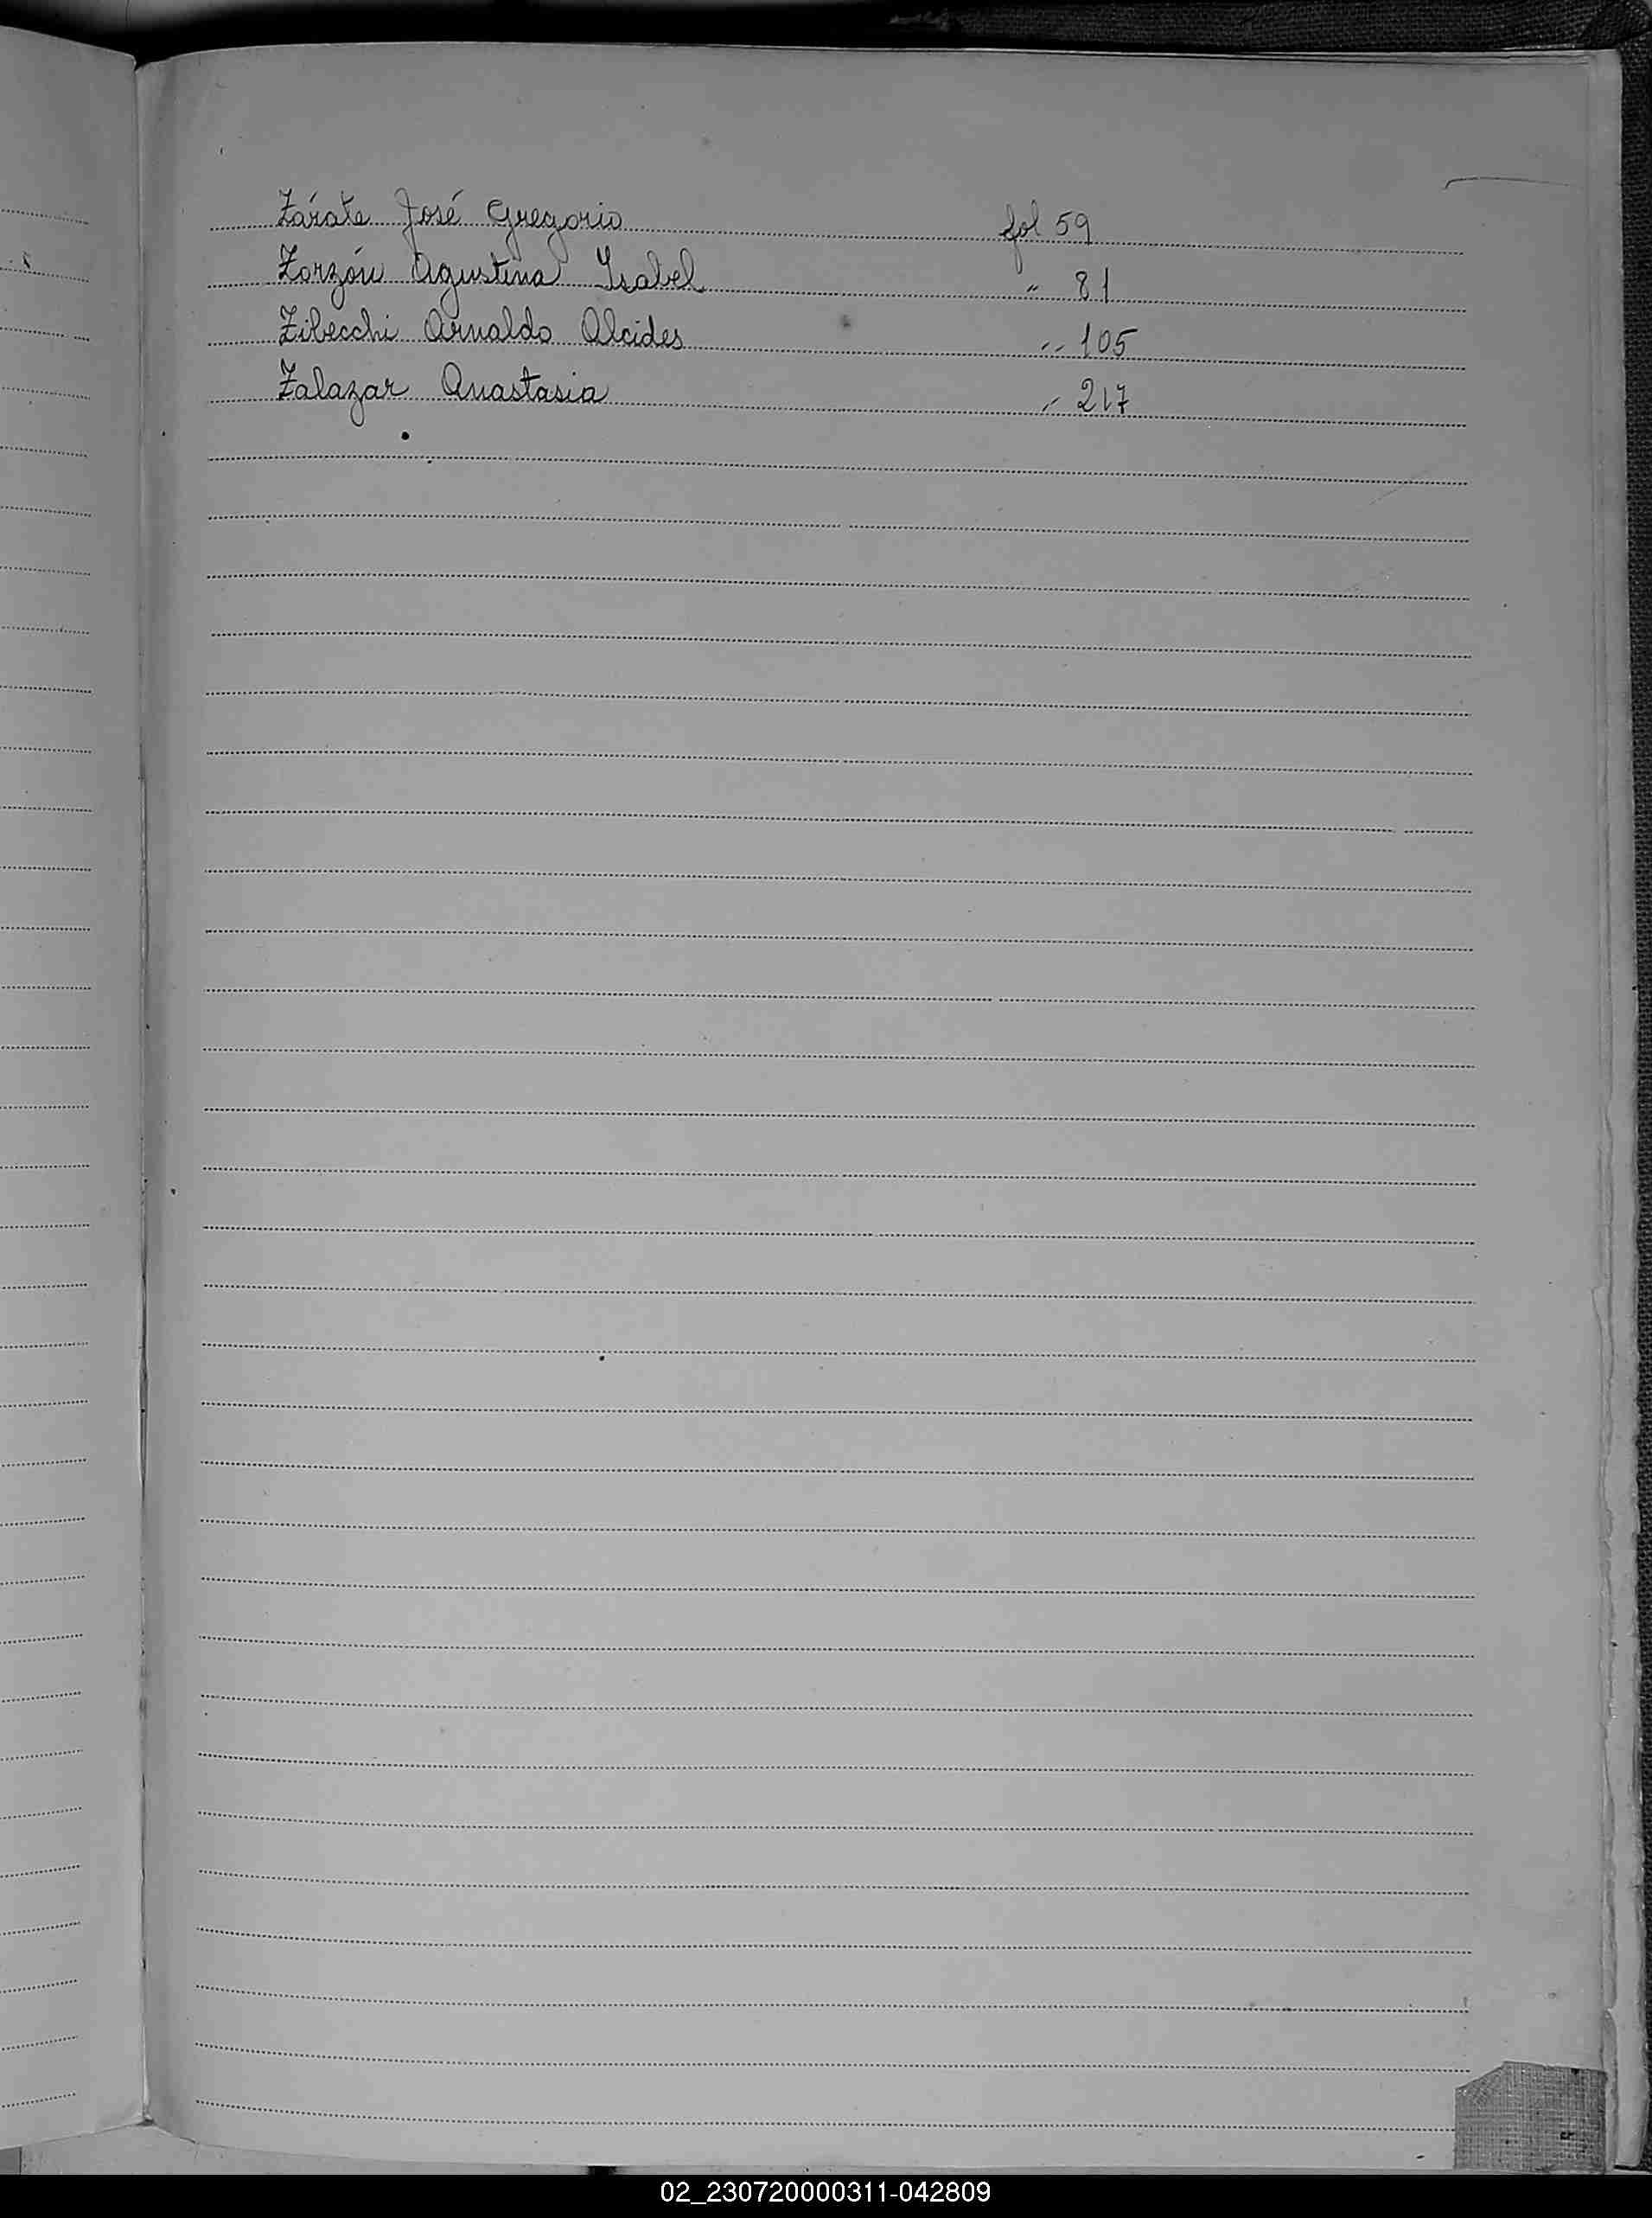 Zárate José Gregorio fol 59
Zorzón Agustina Isabel " 81
Zibecchi Arnaldo Alcides " 105
Zalazar Anastasia " 217
02_230720000311-042809